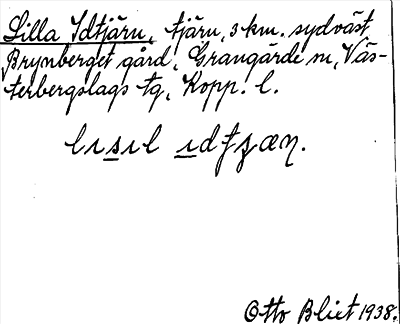 Lilla Idtjärn, tjärn, 3 km. sydväst
Brynberget gård, Grangärde sn, Väs-
terbergslags tg, Kopp. l.
Otto Blixt 1938.